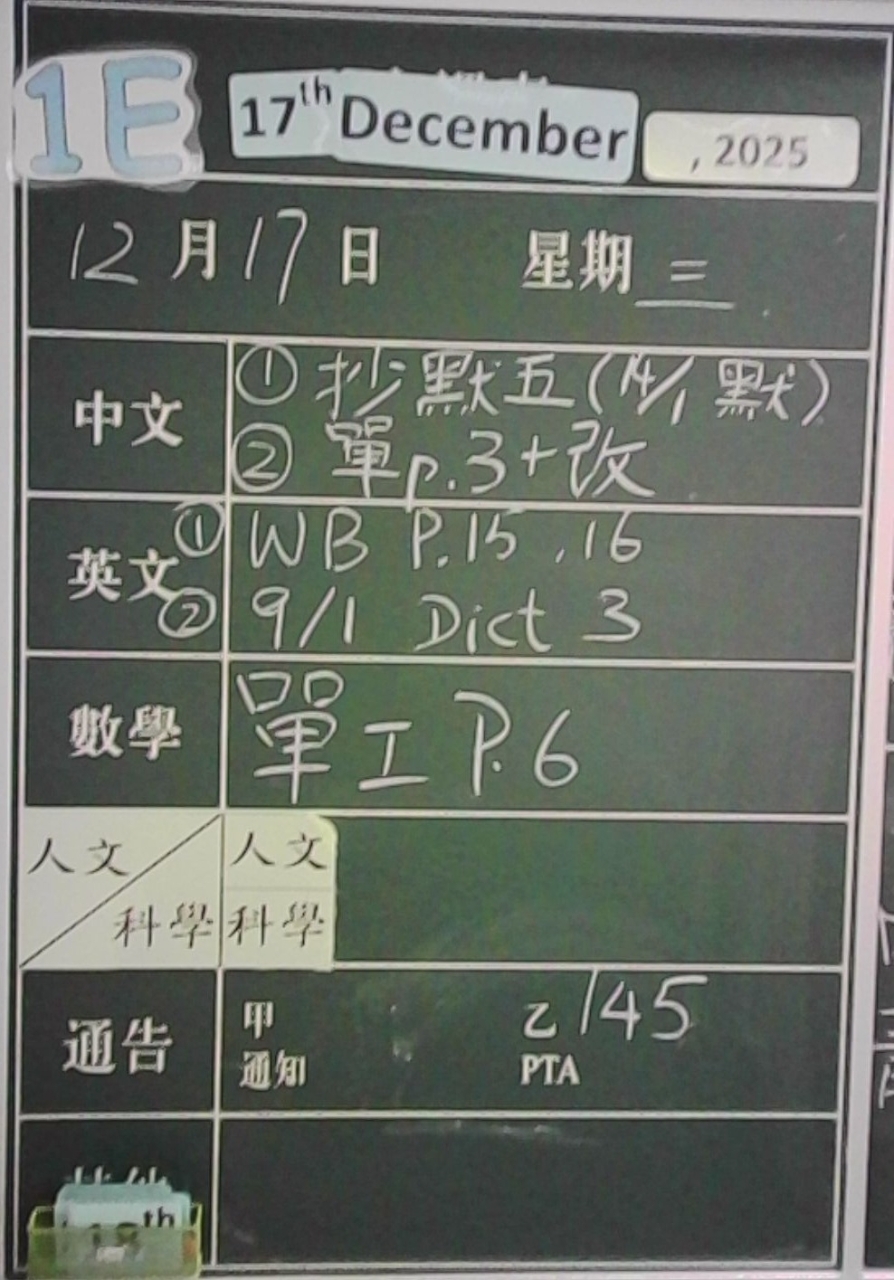 1E 17th December , 2025
12月17日 星期三
中文 ① 抄默五(14/1 默)
② 單p.3+改
英文 ① WB P.15 ,16
② 9/1 Dict 3
數學 單工 P.6
人文 人文
科學 科學
通告 甲 乙 145
通知 PTA
18th